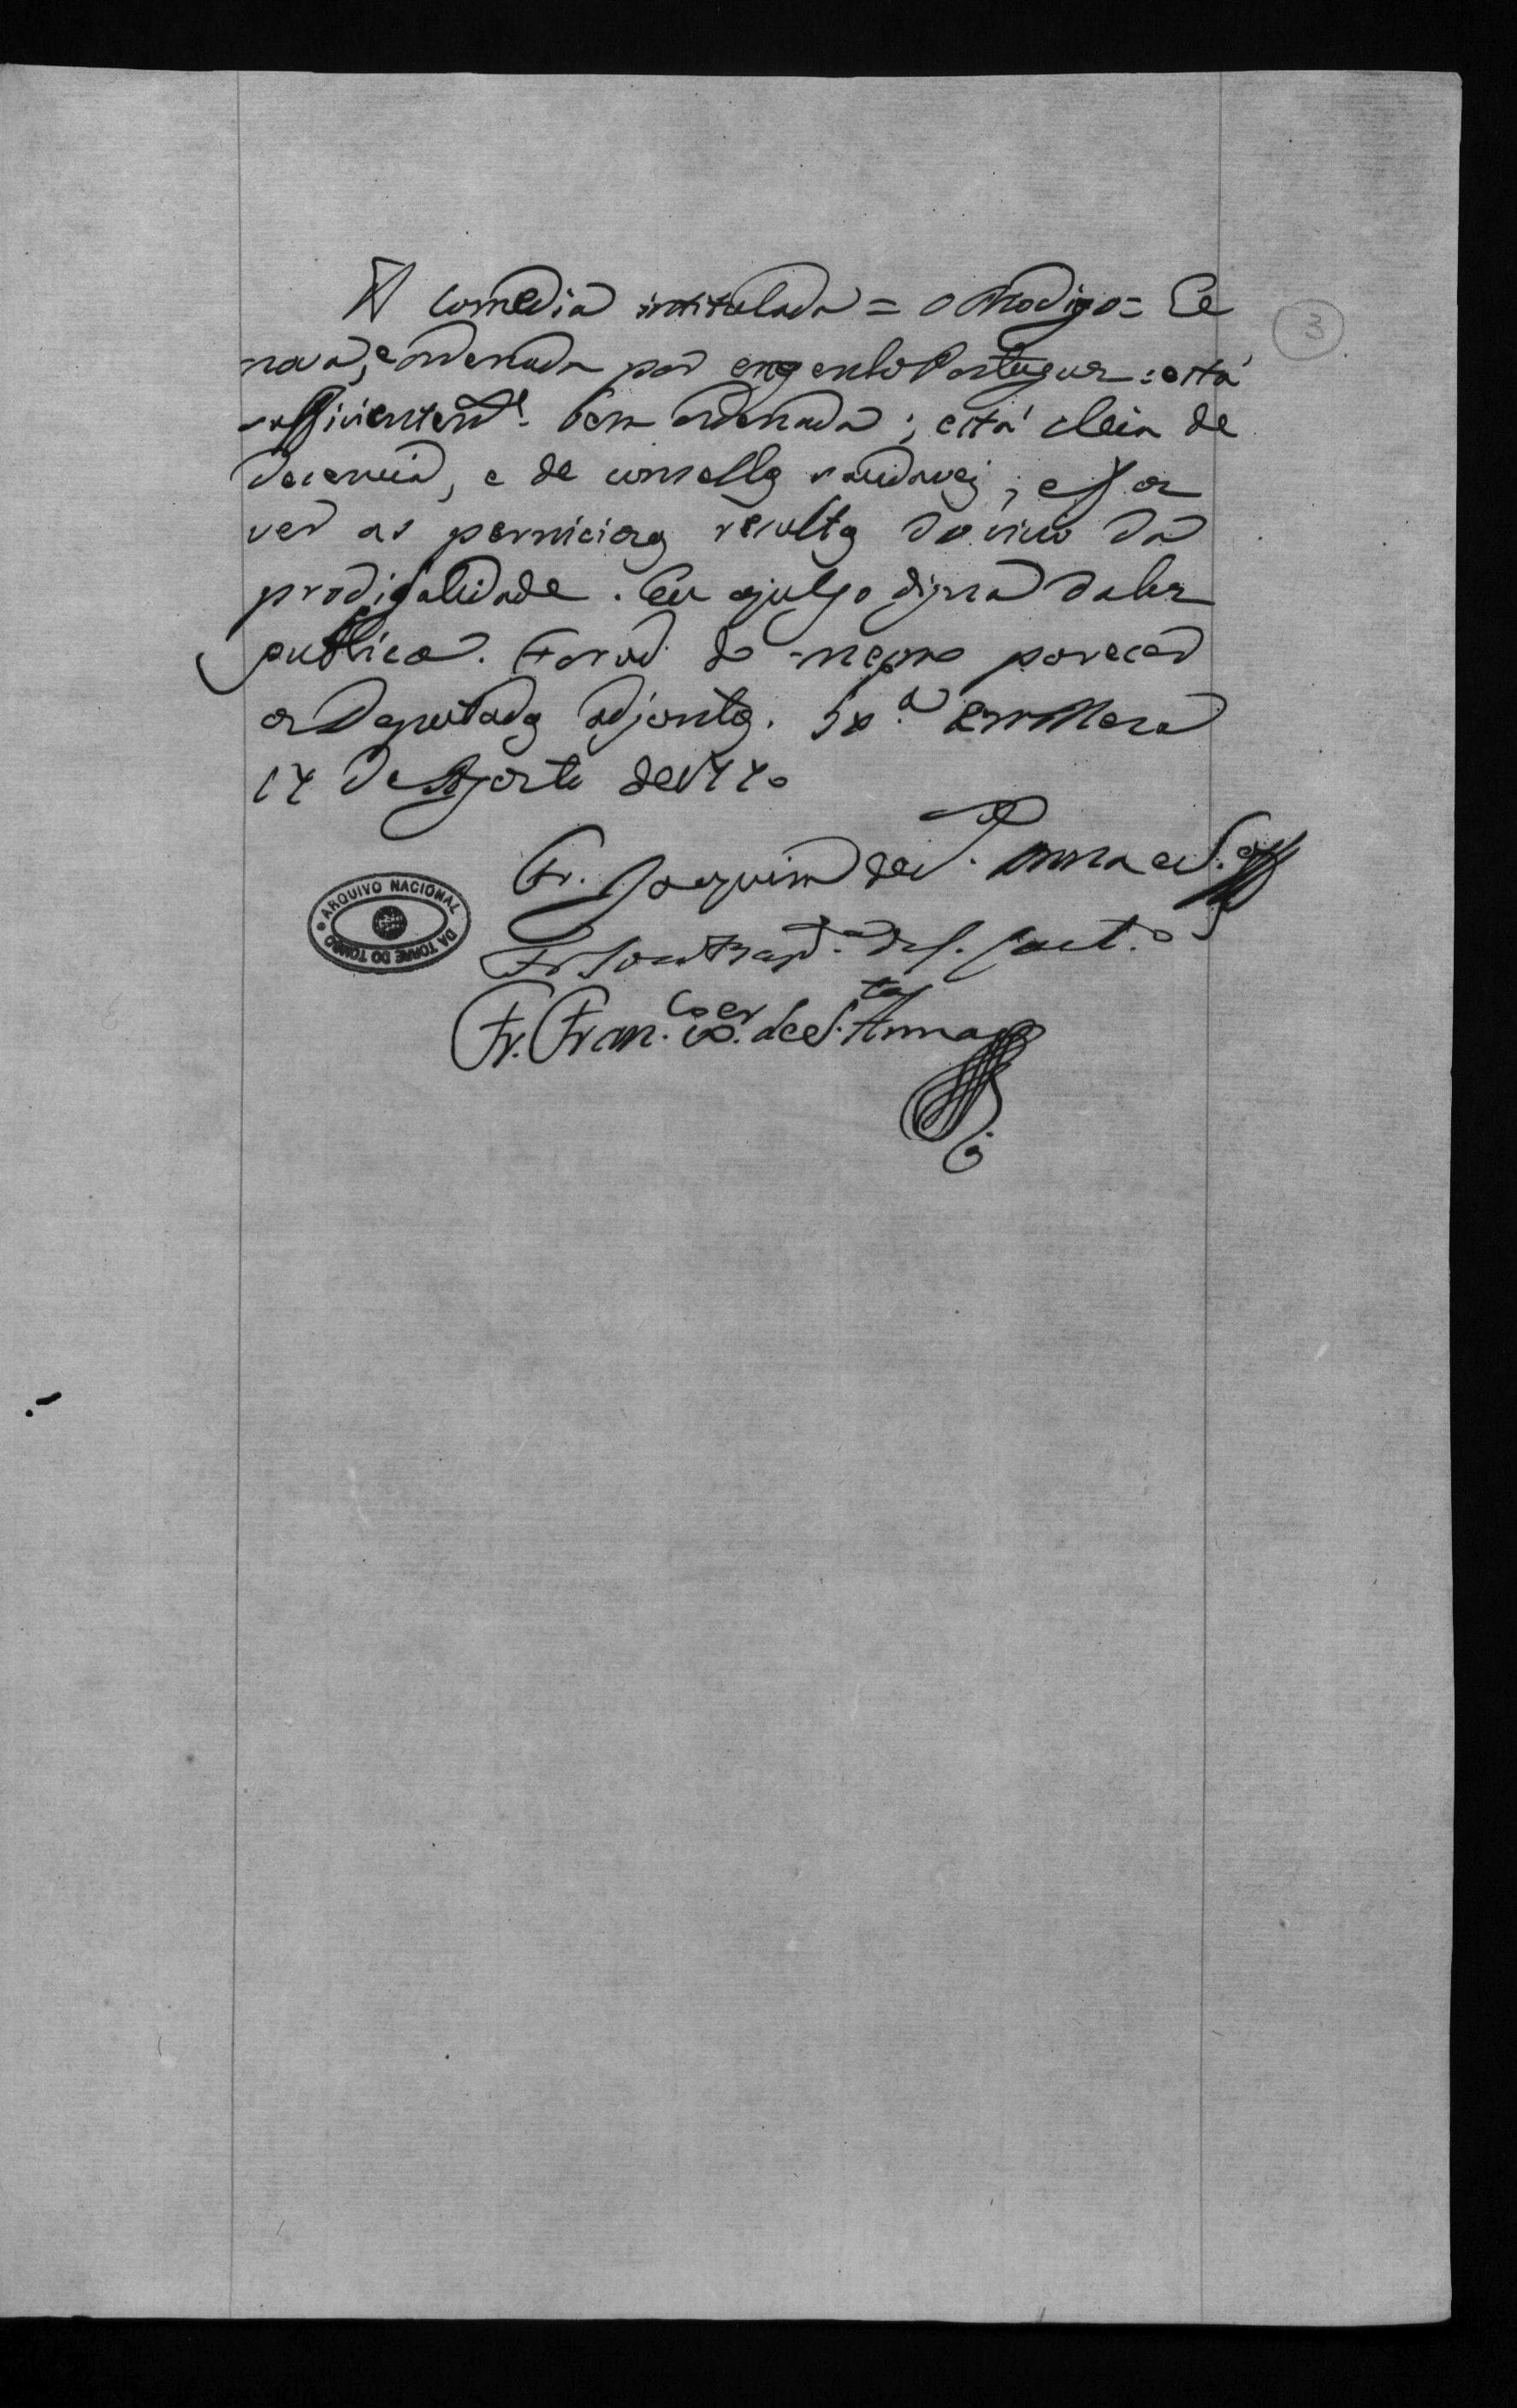 A comedia intitulada = o Prodigo = he
3
nova, e ordenada por engenho Portuguez : está
sufficientem.e bem ordenada ; está cheia de
decencia, e de conselhos saudaveis, e faz
ver as perniciozas rezultas do vicio da
prodigalidade. Eu a julgo digna da luz
publica. Forão do mesmo parecer
os Deputados adjuntos. Lx.a em Meza
17 de Agosto de 177
Fr. Joaquim de S. Anna e S.a
Fr. João Bap.ta de S. Caet.o
Fr. Fran.co X.er de S.ta Anna
ARQUIVO NACIONAL
DA TORRE DO TOMBO